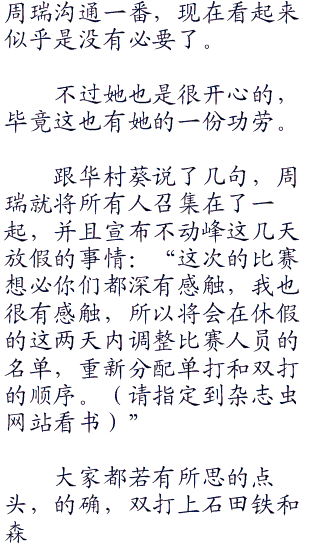 周瑞沟通一番，现在看起来
似乎是没有必要了。
不过她也是很开心的，
毕竟这也有她的一份功劳。
跟华村葵说了几句，周
瑞就将所有人召集在了一
起，并且宣布不动峰这几天
放假的事情：“这次的比赛
想必你们都深有感触，我也
很有感触，所以将会在休假
的这两天内调整比赛人员的
名单，重新分配单打和双打
的顺序。（请指定到杂志虫
网站看书）”
大家都若有所思的点
头，的确，双打上石田铁和
森